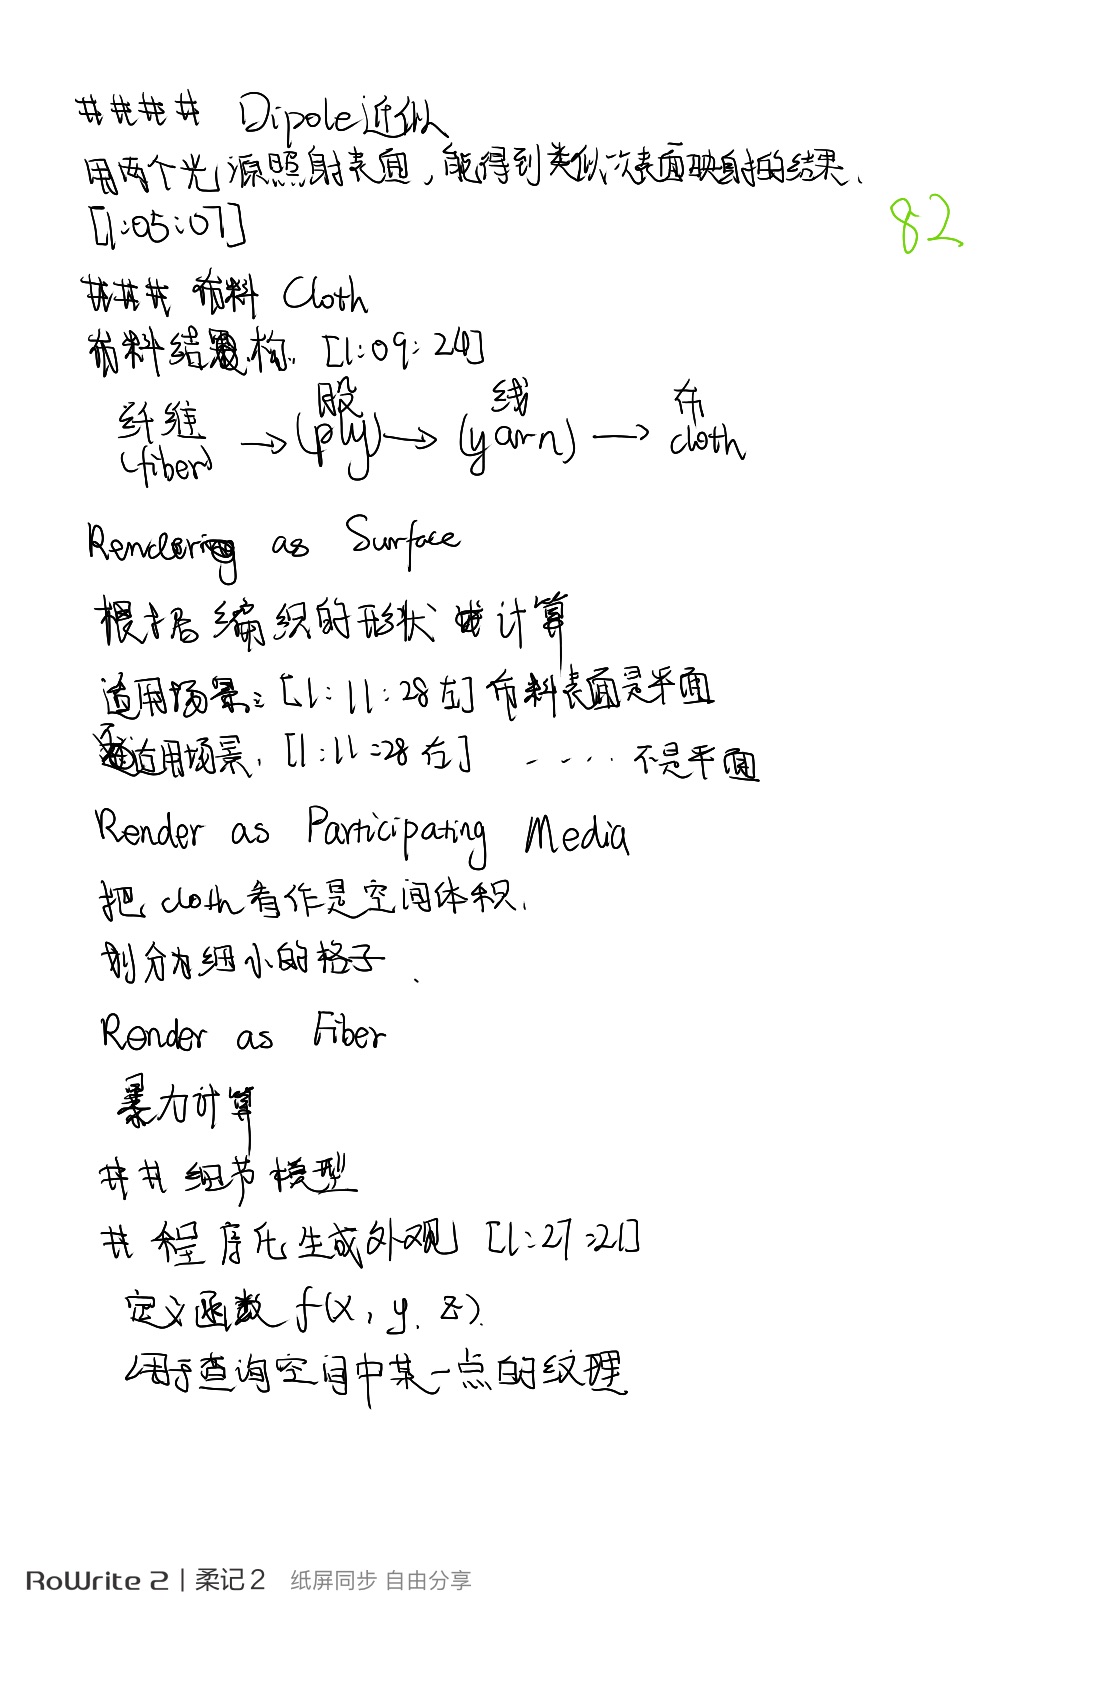 #### Dipole近似
用两个光源照射表面,能得到类似次表面映射的结果、
[1:05:07]
82
### 布料 Cloth
布料结构. [1:09:24]
股 线 布
纤维 → (ply) → (yarn) → cloth
(fiber)
Rendering as Surface
根据编织的形状 计算
适用场景: [1:11:28左] 布料表面是平面
不适用场景. [1:11:28右] ..... 不是平面
Render as Participating Media
把 cloth看作是空间体积.
划分为细小的格子.
Render as Fiber
暴力计算
## 细节模型
# 程序化生成外观 [1:27:21]
定义函数 f(x, y, z).
用于查询空间中某一点的纹理
RoWrite 2 | 柔记 2 纸屏同步 自由分享